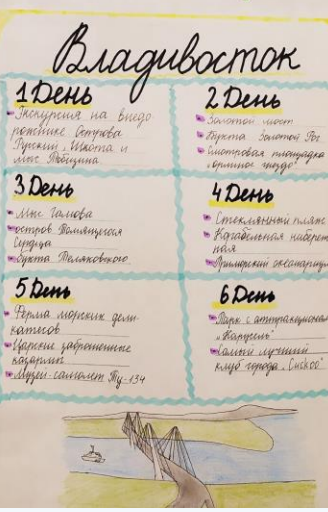 Владивосток
1 День
Экскурсия на внедо-
рожнике Острова
Русский, Шкота и
мыс Тобизина.
2 День
Золотой мост
Бухта Золотой Рог
Смотровая площадка
"Орлиное гнездо"
3 День
Мыс Гамова
остров Томящегося
Сердца
бухта Теляковского
4 День
Стеклянный пляж
Корабельная набереж
ная
Приморский океанариум
5 День
Ферма морских дели-
катесов
Царские заброшенные
казармы
Музей-самолет Ту-134
6 День
Парк с аттракционами
"Карусель"
Самый лучший
клуб города